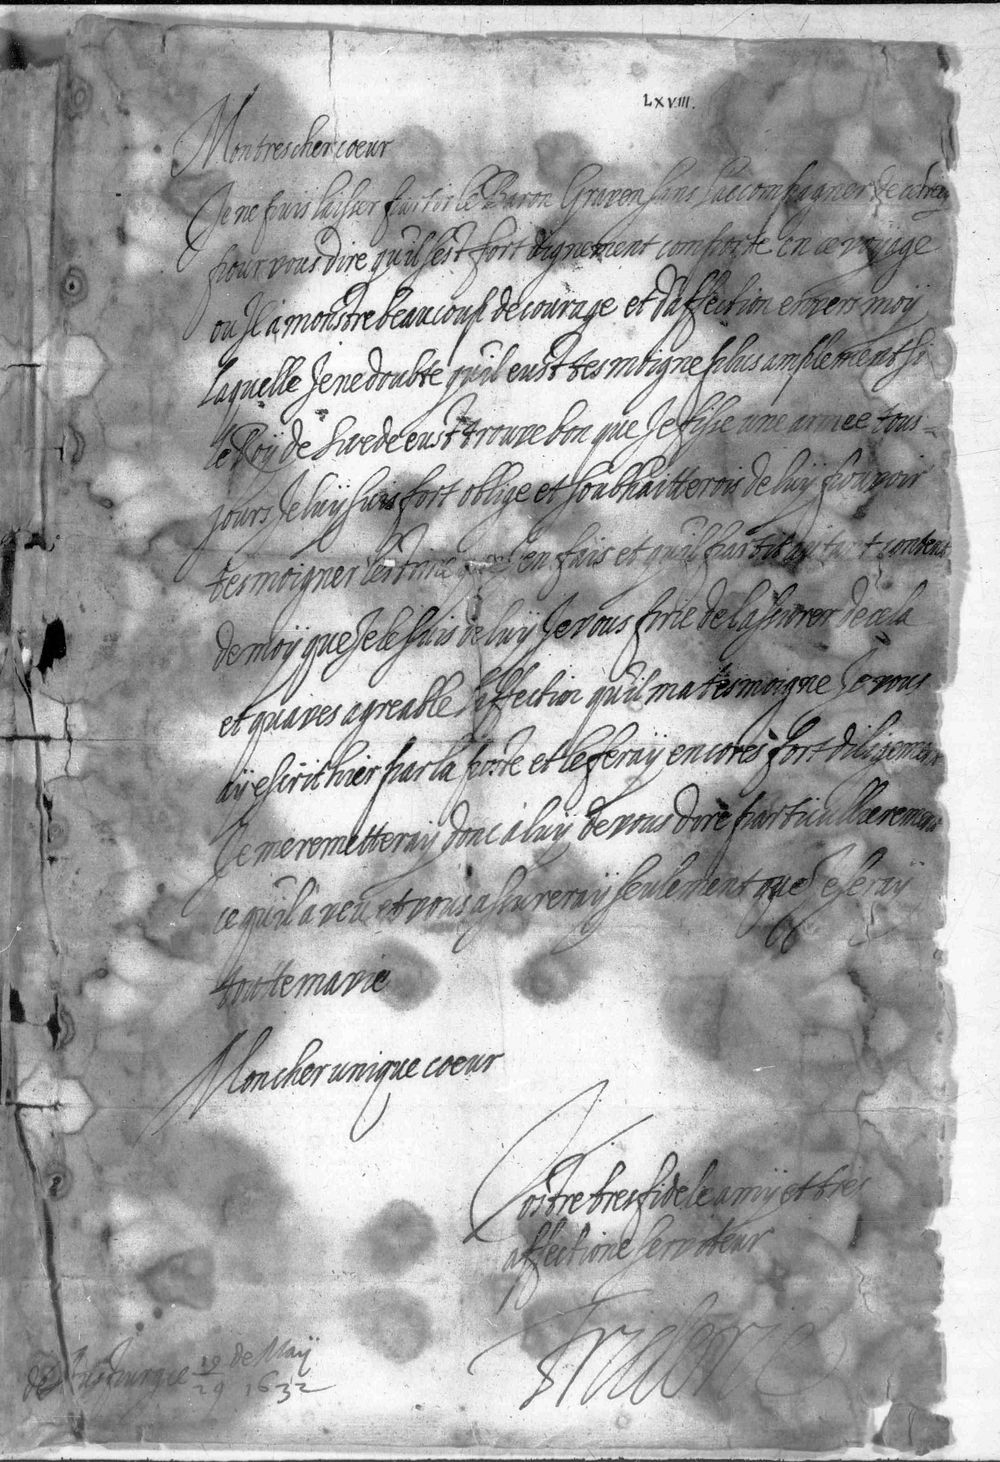 LXVIII.
Mon trescher coeur
Je ne puis laisser partir le Baron Craven sans l'accompagner de cel
pour vous dire qu'il s'est fort dignement comporte en ce voyage
ou Il a monstre beaucoup de courage et d'affection envers moÿ
laquelle Je ne doubte qu'il eust tesmoigne plus amplement si
le Roÿ de Swede eust trouve bon que Je fisse une armee tous=
jours Je luÿ suis fort oblige et soubhaitterois de luÿ pouvoir
tesmoigner l'estime que J'en fais et qu'il partit autant content
de moÿ que Je le suis de luÿ Je vous prie de l'asseurer de cela
et qu'aves agreable l'affection qu'il m'a tesmoigne Je vous
aÿ escrit hier par la poste et le feraÿ encores fort diligement
Je me remetteraÿ donc a luÿ de vous dire particullierement
ce qu'il a veu et vous asseureraÿ seulement que Je seraÿ
toutte ma vie
Mon cher unique coeur
Vostre tres fidele amÿ et tres
affectione serviteur
Frideric
de Ausburgce 19/29 de Maÿ 1632